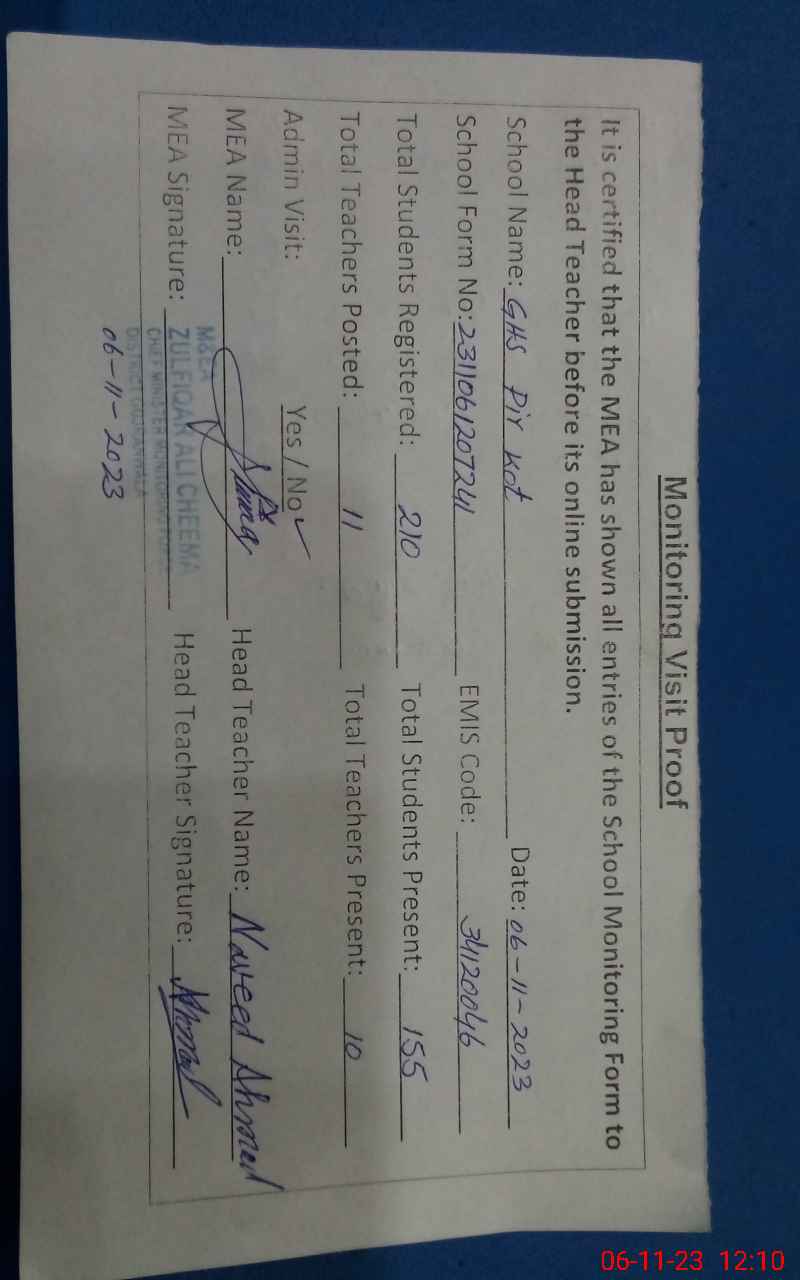 Monitoring Visit Proof
It is certified that the MEA has shown all entries of the School Monitoring Form to
the Head Teacher before its online submission.
School Name: GHS Pir Kot Date: 06-11-2023
School Form No: 2311061207241 EMIS Code: 34120046
Total Students Registered: 210 Total Students Present: 155
Total Teachers Posted: 11 Total Teachers Present: 10
Admin Visit: Yes / No ✓
MEA Name: Head Teacher Name: Naveed Ahmad
MEA Signature: Head Teacher Signature: Ahmad
M&EA
ZULFIQAR ALI CHEEMA
CHIEF MINISTER MONITORING FORCE
DISTRICT GUJRANWALA
06-11-2023
06-11-23 12:10